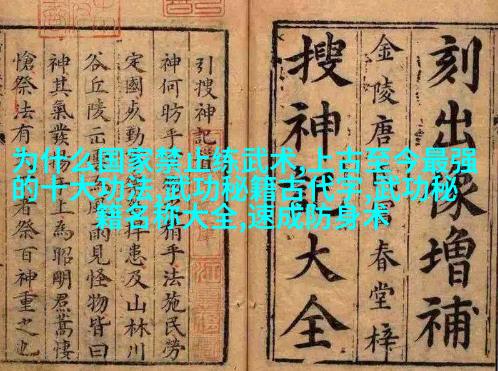 为什么国家禁止练武术,上古至今最强
的十大功法,武功秘籍古代字,武功秘
籍名称大全,速成防身术
刻出像增補
搜神大全
金陵唐春堂梓
引搜神記
神何昉乎手法施民勞
定國捍患及山林川
谷丘陵見怪物皆曰
神其氣發揚上為昭明焄蒿悽
愴祭法有者祭百神重之也